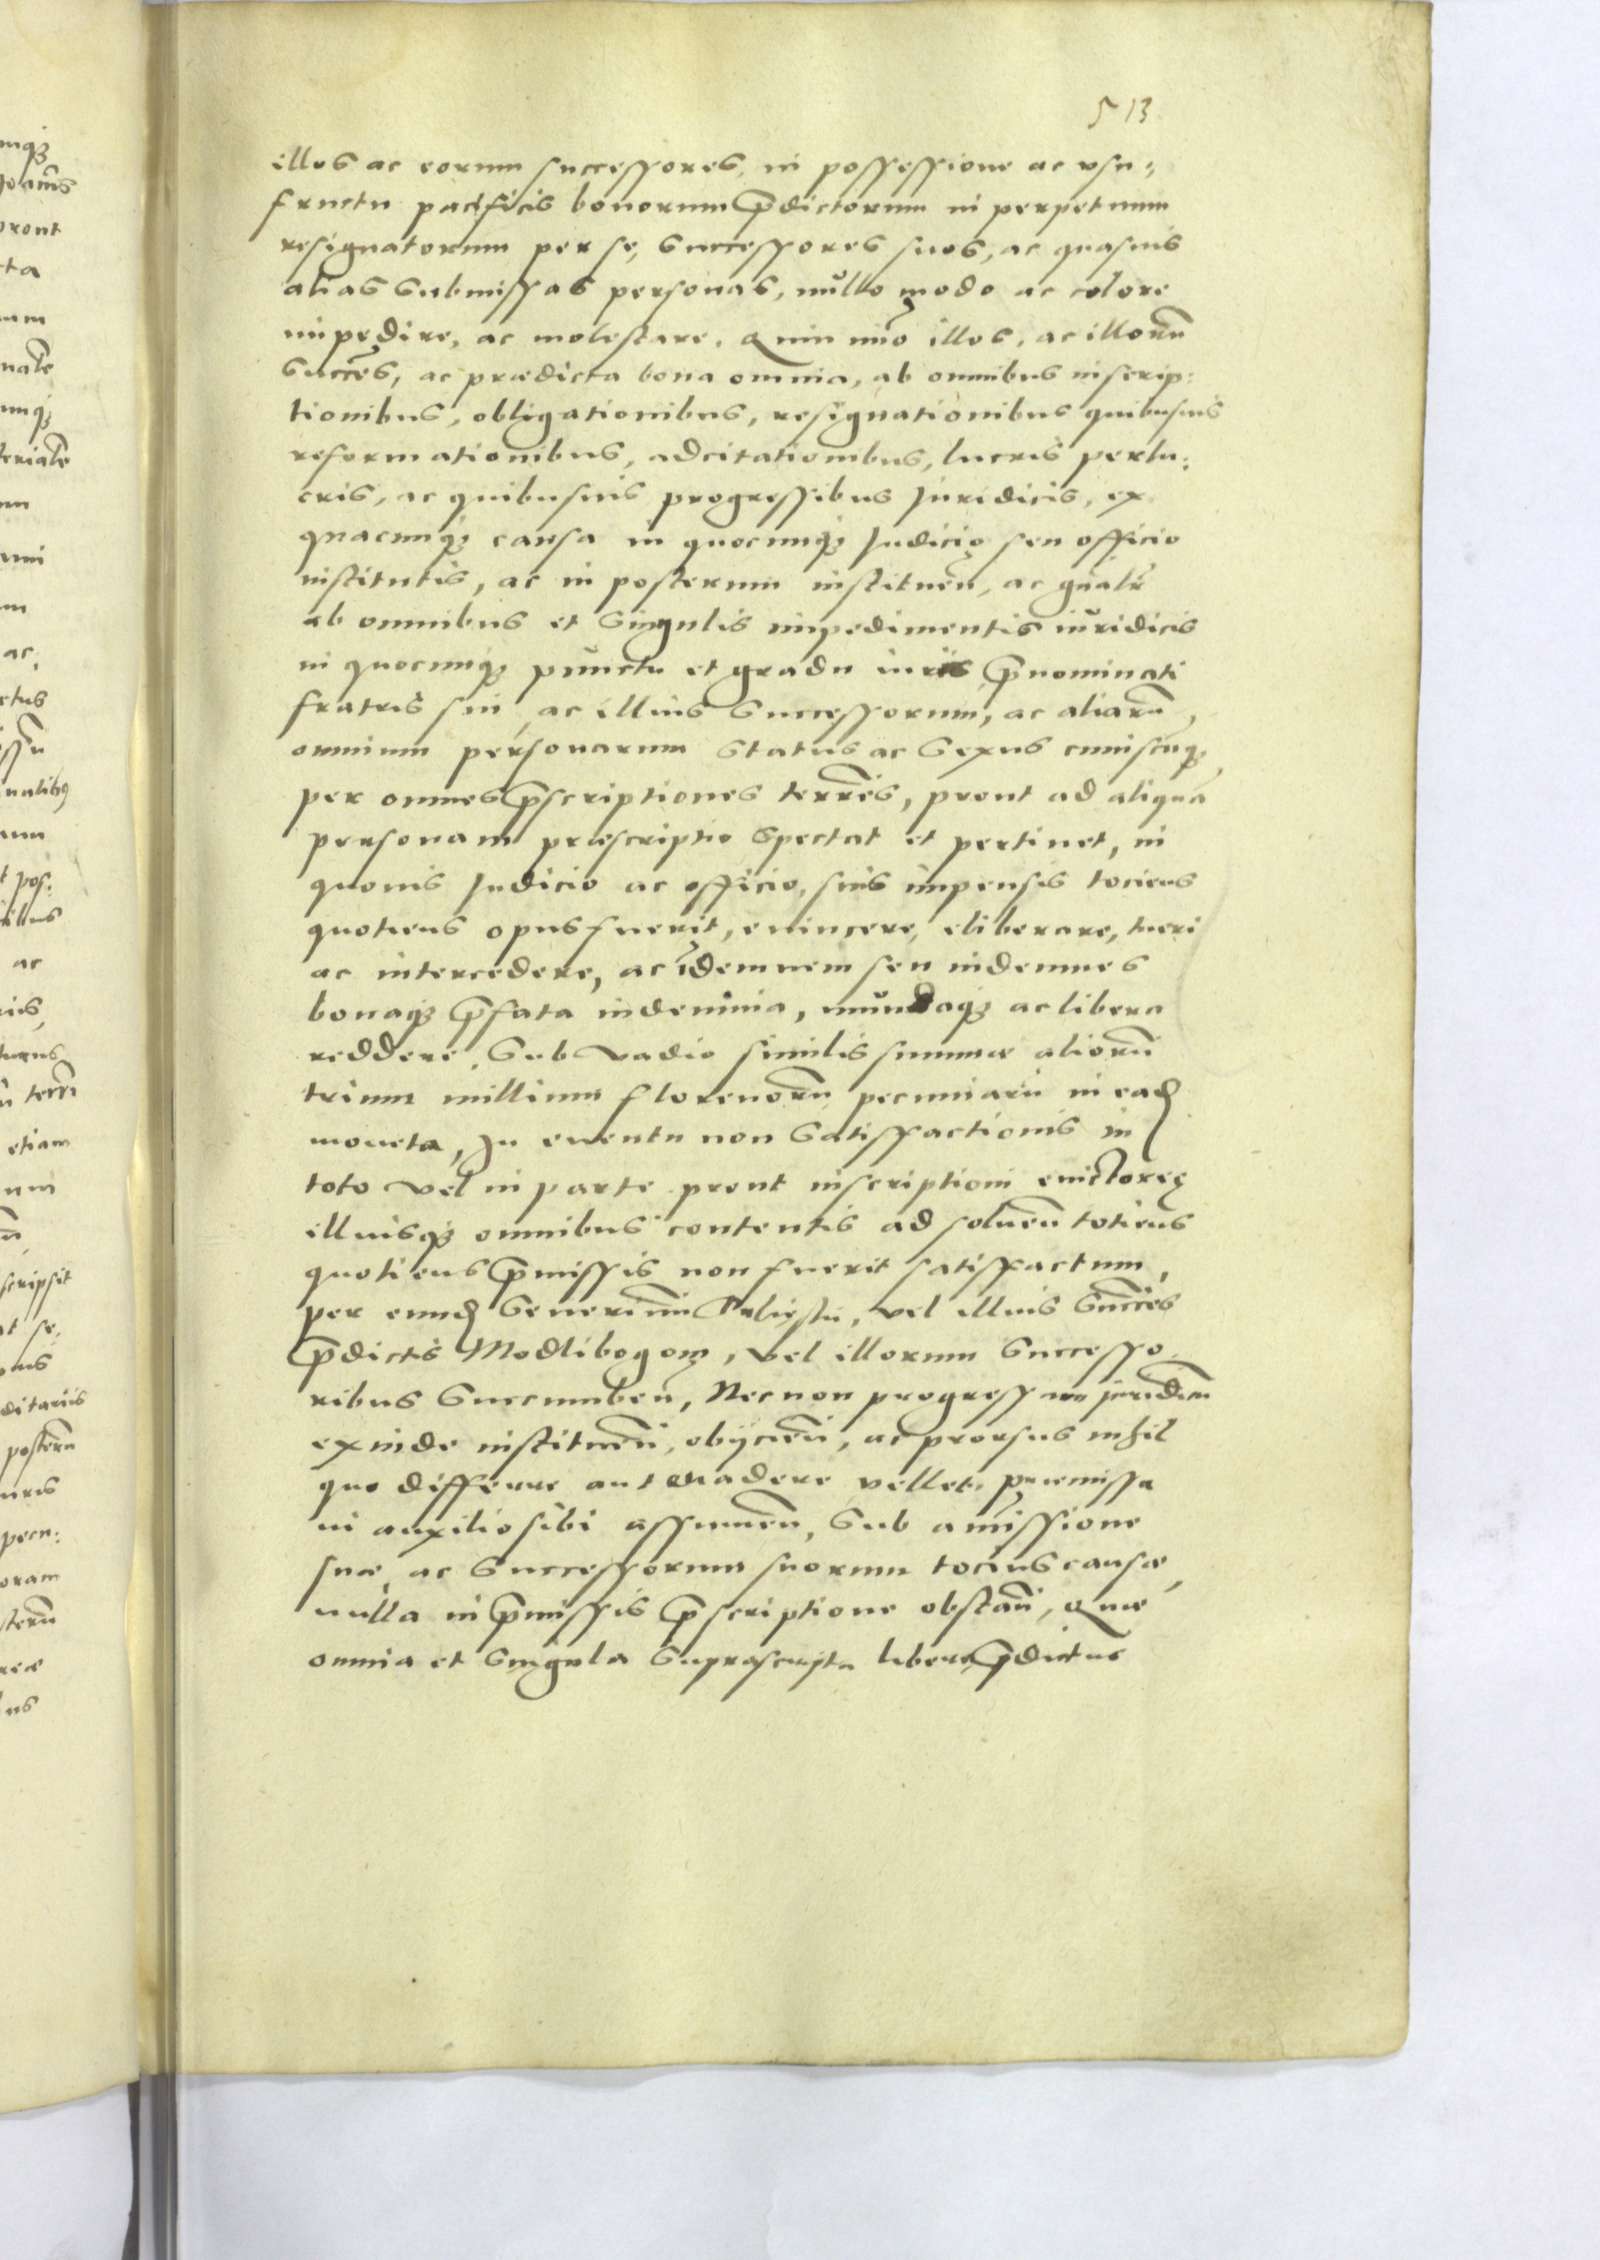 513
illos ac eorum successores, in possessione ac vsu-
fructu pacificis bonorum p̄dictorum in perpetuum
resignatorum per se, successores suos, ac quasuis
alias submissas personas, nullo modo ac colore
impedire, ac molestare. Quin imo illos, ac illorū
succes̄, ac praedicta bona omnia, ab omnibus inscrip-
tionibus, obligationibus, resignationibus quibusuis
reformationibus, adcitationibus, lucris perlu-
cris, ac quibusuis progressibus Juridicis, ex
quacunq3 causa in quocunq3 Judicio seu officio
institutis, ac in posterum instituen̄, ac gn̄alr̄
ab omnibus et singulis impedimentis iuridicis
in quocunq3 punctu et gradu iuris p̄nominati
fratris sui, ac illius successorum, ac aliarū,
omnium personarum status ac sexus cuiuscūq3
per omnes p̄scriptiones terrēs, prout ad aliquā
personam praescriptio spectat et pertinet, in
quouis Judicio ac officio, suis impensis tociens
quotiens opus fuerit, euincere, eliberare, tueri
ac intercedere, ac īdemnem seu indemnes
bonaq3 p̄fata indemnia, mundaq3 ac libera
reddere, sub vadio similis summae aliorū
trium millium florenorū pecuniarū in ead
moneta, In euentu non satisfactionis in
toto vel in parte prout inscriptioni euictoreę
illiusq3 omnibus contentis ad soluen̄ totiens
quotiens p̄missis non fuerit satisfactum,
per eund Generosum, vel illius succes̄
p̄dictis Modlibogom, vel illorum successo
ribus succumben̄, Necnon progressum juridicū
exinde instituen̄, obijcien̄, ac prorsus nihil
quo differre aut euadere vellet praemissa
in auxilio sibi assumen̄, sub amissione
suae, ac successorum suorum tocius causae,
nulla in p̄missis p̄scriptione obstan̄, Quae
omnia et singula suprascripta libere p̄dictus